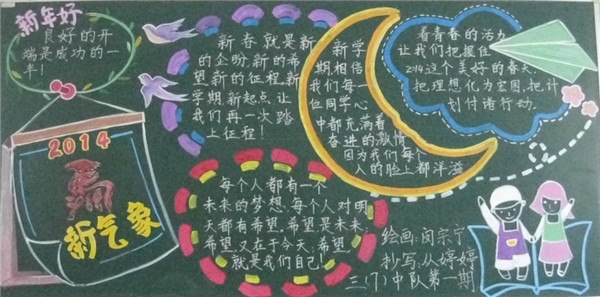 新年好
良好的开
端是成功的一
半！
2014
新气象
新春就是新
的企盼,新的希
望,新的征程,新
学期,新起点,让
我们再一次踏
上征程！
新学
期,相信
我们每一
位同学心
中都充满着
奋进的激情
因为我们每个
人的脸上都洋溢
着青春的活力
让我们把握住
2014这个美好的春天,
把理想化为宏图,把计
划付诸行动.
每个人都有一个
未来的梦想,每个人对明
天都有希望,希望是未来,
希望又在于今天,希望
就是我们自己!
绘画:闵宗宁
抄写:从婷婷
三(7)中队第一期